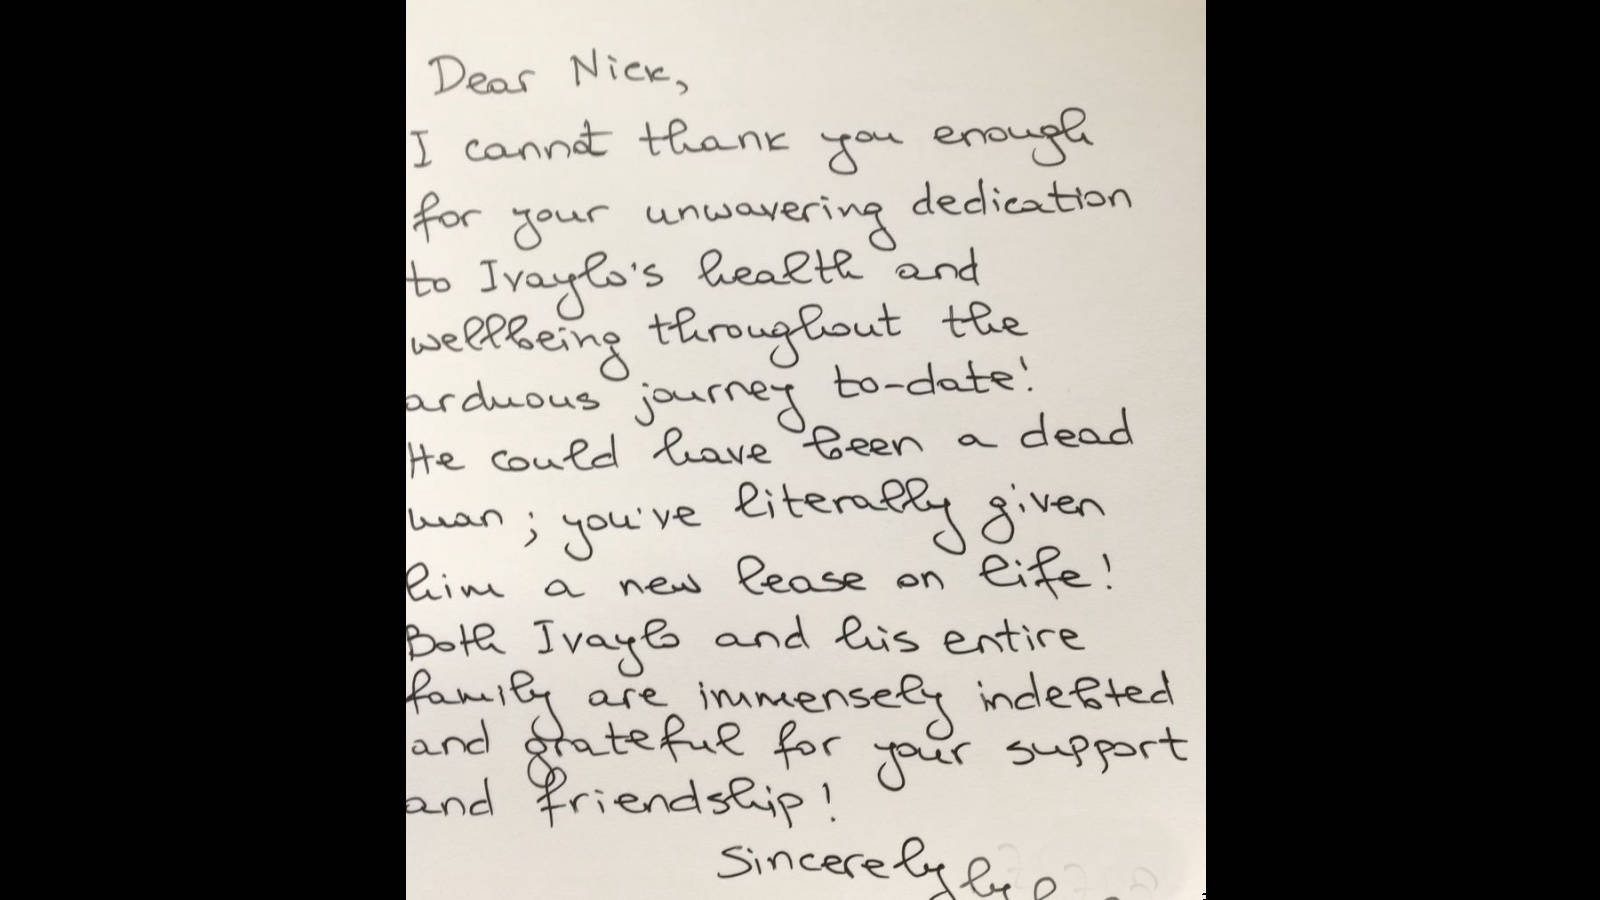 Dear Nick,
I cannot thank you enough
for your unwavering dedication
to Ivaylo's health and
wellbeing throughout the
arduous journey to-date!
He could have been a dead
man; you've literally given
him a new lease on life!
Both Ivaylo and his entire
family are immensely indebted
and grateful for your support
and friendship!
Sincerely